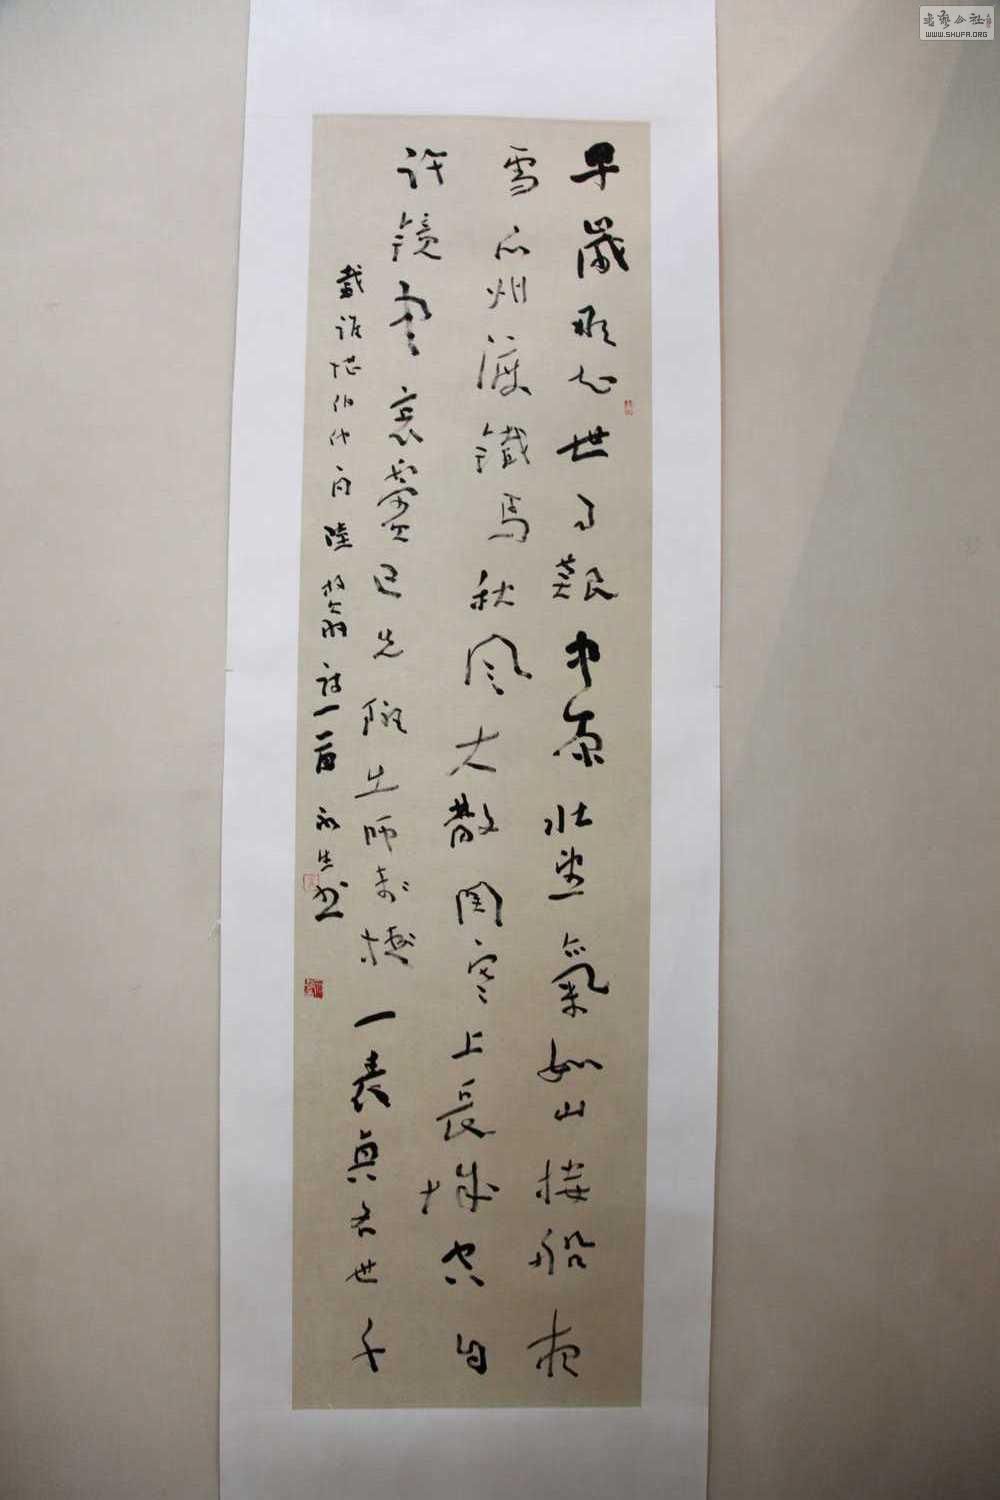 早歲那知世事艱中原北望氣如山樓船夜
雪瓜州渡鐵馬秋風大散關塞上長城空自
許鏡中衰鬢已先斑出師一表真名世千
載誰堪伯仲間 陸放翁詩一首 永生書
WWW.SHUFA.ORG